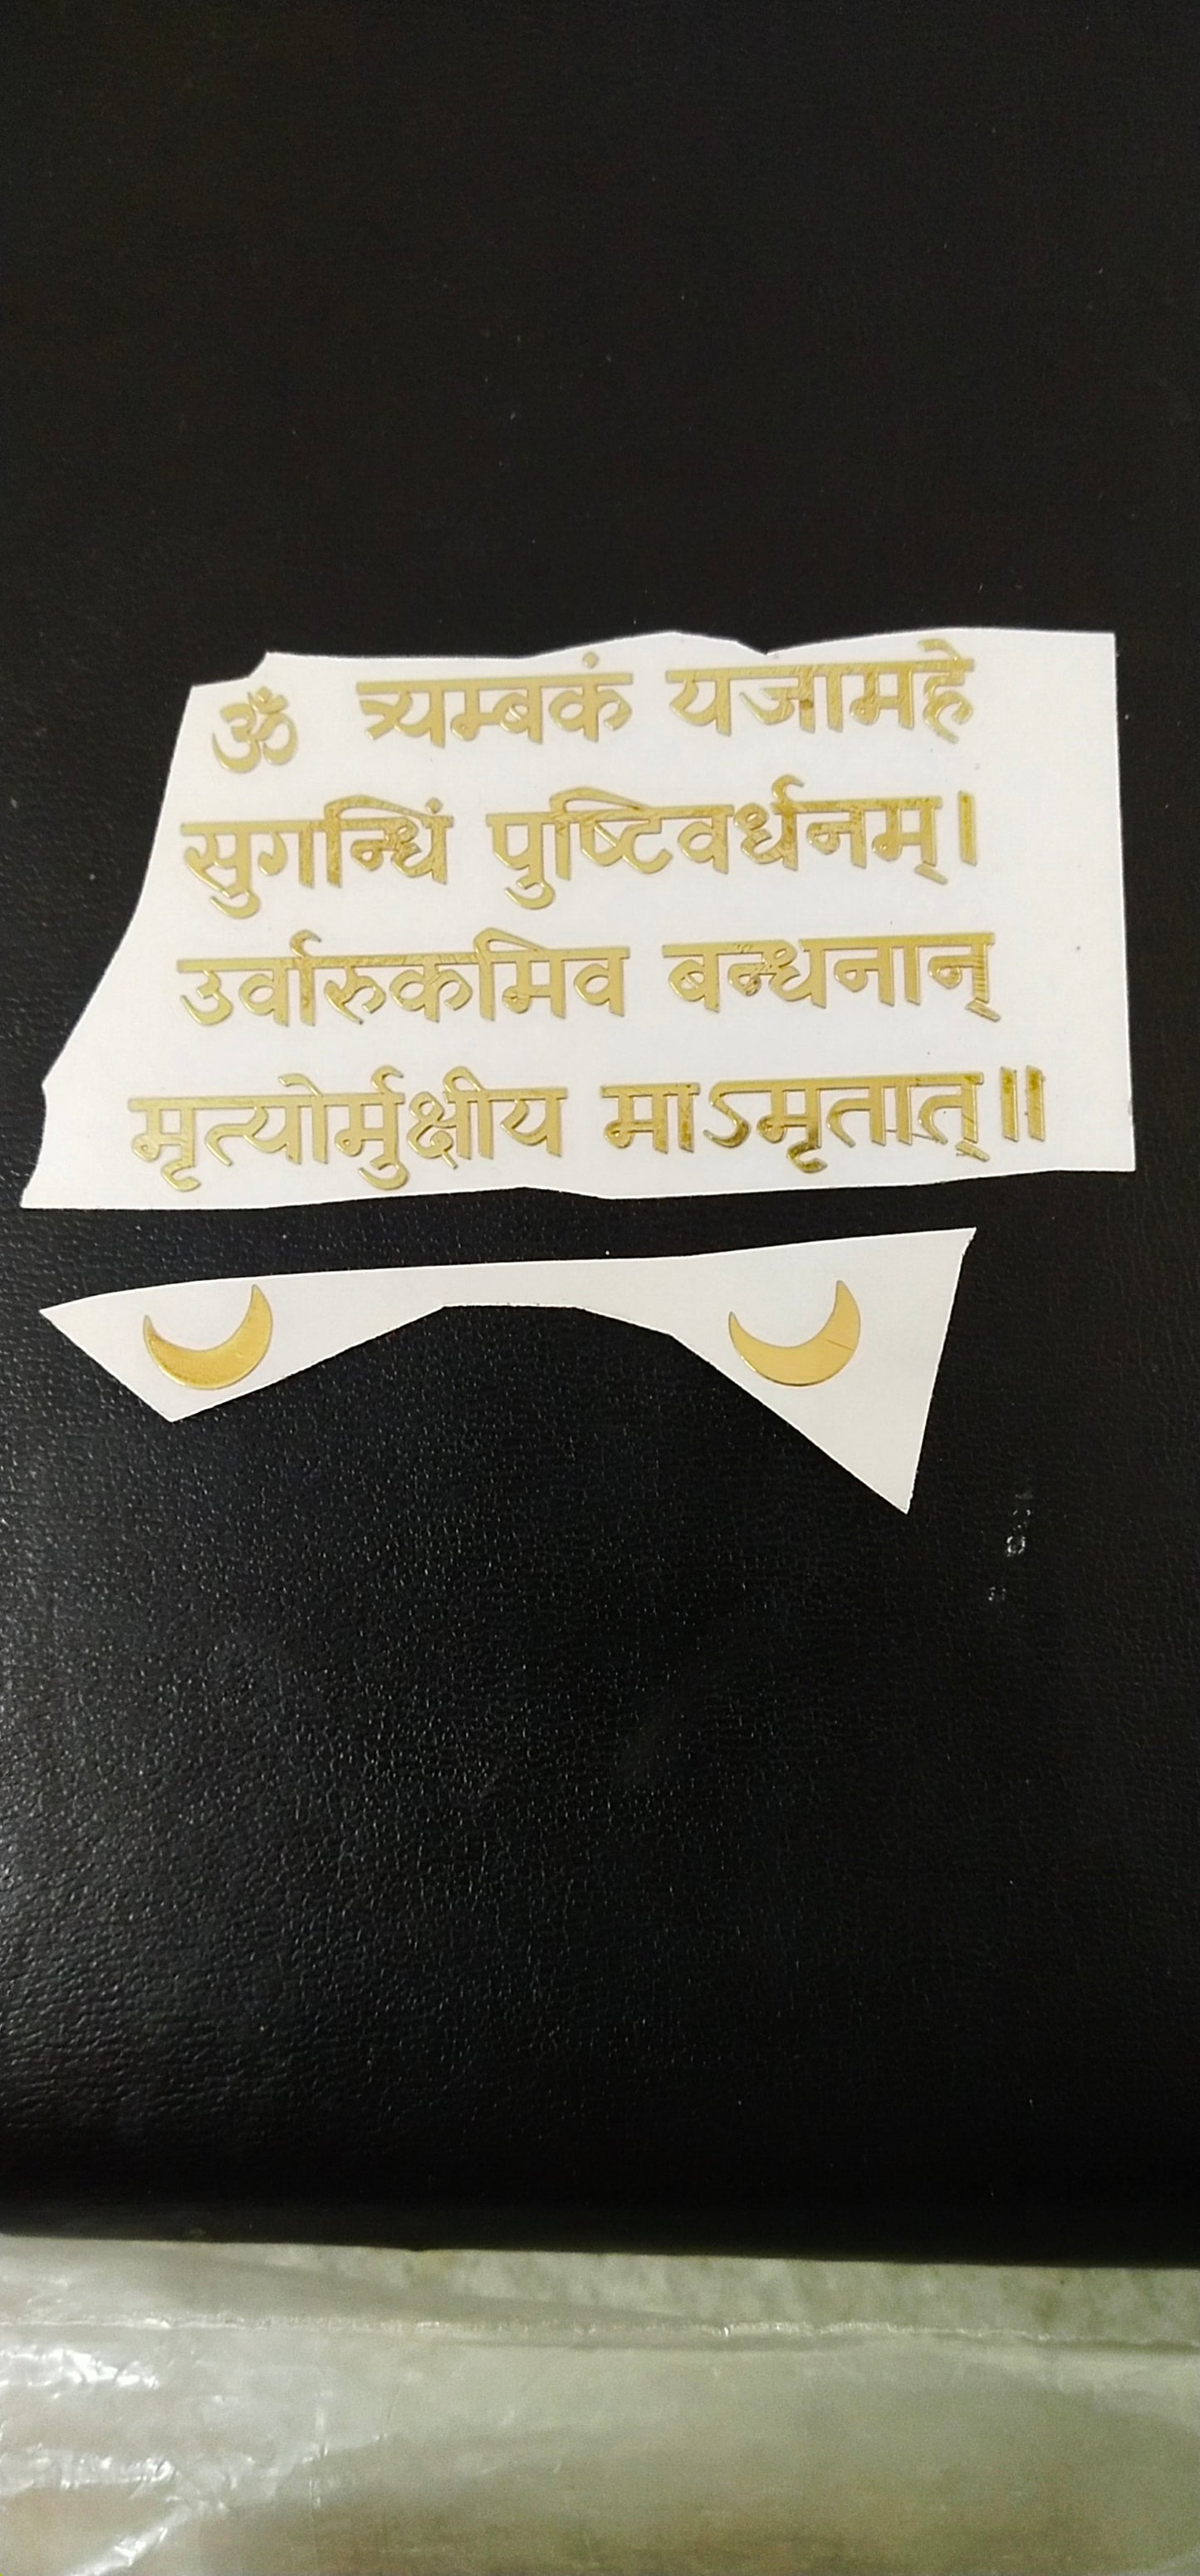 ॐ त्र्यम्बकं यजामहे
सुगन्धिं पुष्टिवर्धनम्।
उर्वारुकमिव बन्धनान्
मृत्योर्मुक्षीय माऽमृतात्॥